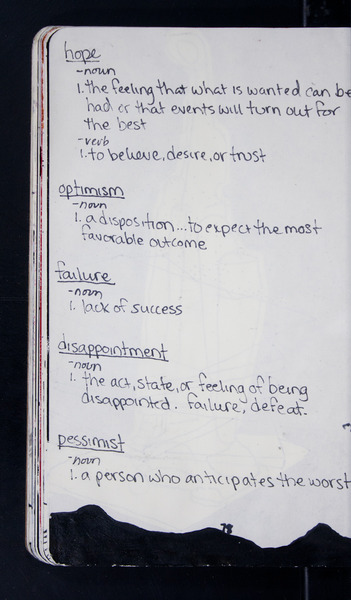 hope
-noun
1. the feeling that what is wanted can be
had or that events will turn out for
the best
-verb
1. to believe, desire, or trust
optimism
-noun
1. a disposition...to expect the most
favorable outcome
failure
-noun
1. lack of success
disappointment
-noun
1. the act, state, or feeling of being
disappointed. failure; defeat.
pessimist
-noun
1. a person who anticipates the worst
78